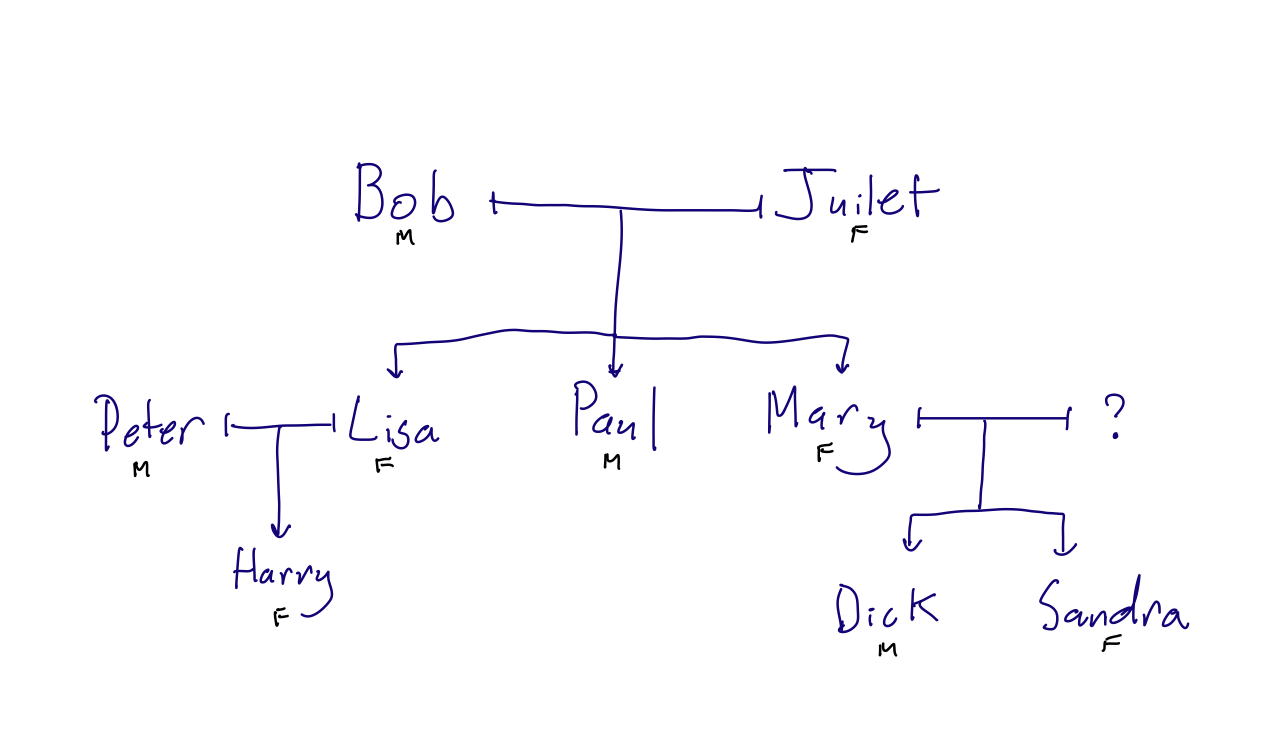 Bob Juilet
M F
Peter Lisa Paul Mary ?
M F M F
Harry
F
Dick Sandra
M F